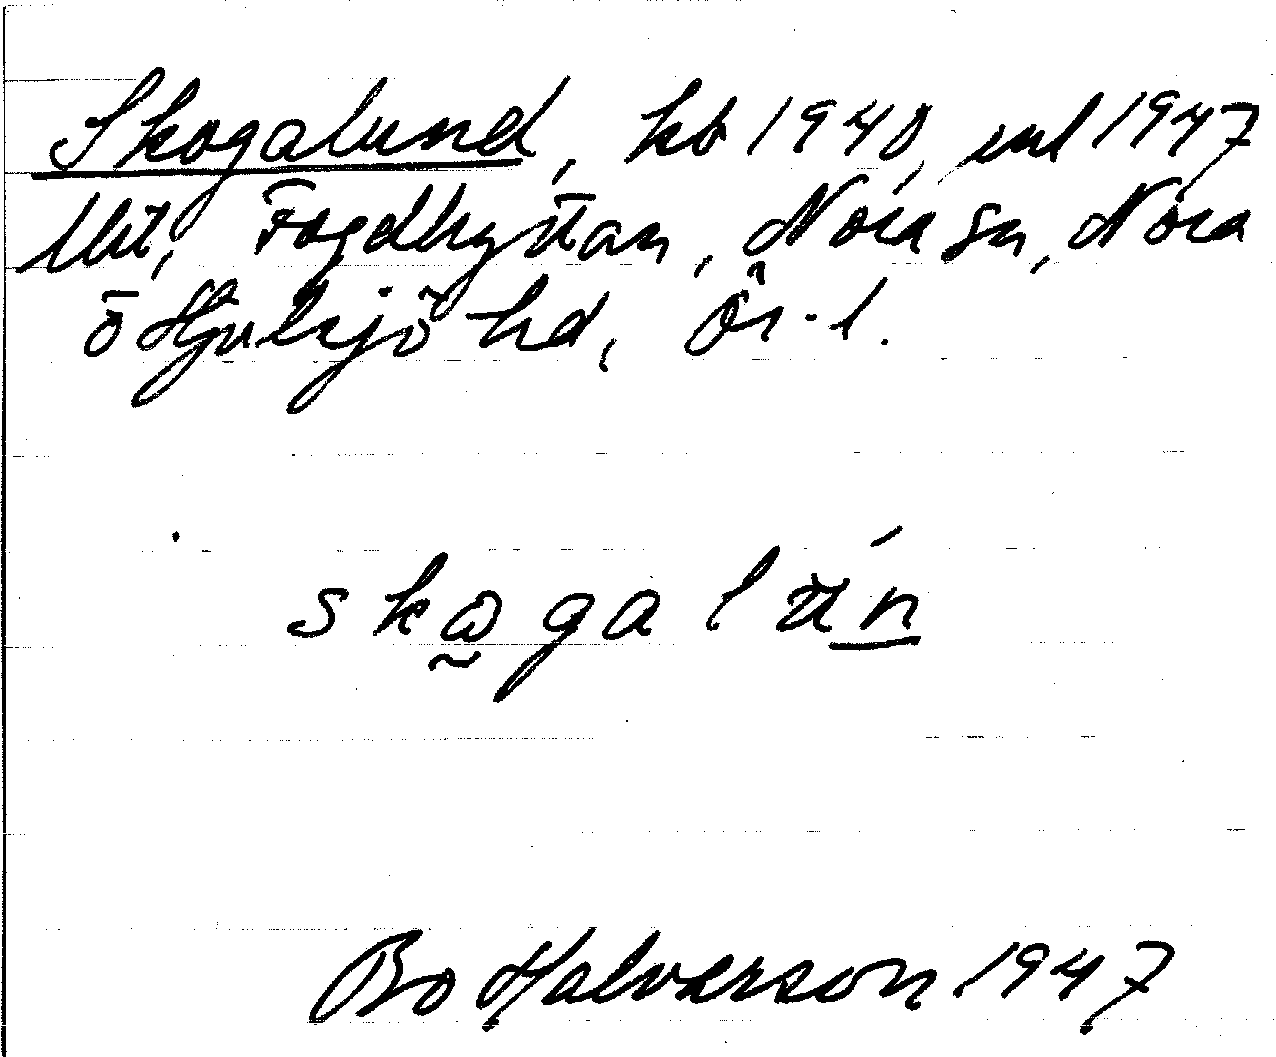 Skogalund, kb 1940, uul 1947
Utt, Fogdhyttan, Nora sn, Nora
o Hjulsjö hd, Ör. l.
skogalún
Bo Halvarson 1947